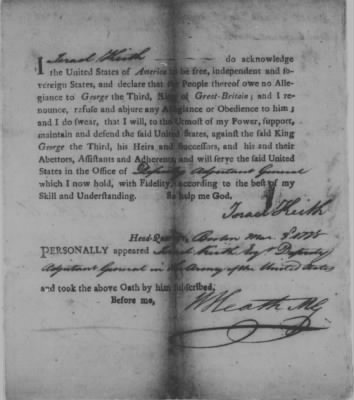 I Israel Keith do acknowledge
the United States of America to be free, independent and so-
vereign States, and declare that the People thereof owe no Alle-
giance to George the Third, King of Great-Britain; and I re-
nounce, refuse and abjure any Allegiance or Obedience to him;
and I do swear, that I will, to the Utmost of my Power, support,
maintain and defend the said United States, against the said King
George the Third, his Heirs and Successors, and his and their
Abettors, Assistants and Adherents, and will serve the said United
States in the Office of Deputy Adjutant General
which I now hold, with Fidelity, according to the best of my
Skill and Understanding. So help me God.
Israel Keith
Head-Quarters, Boston Mar. 1778
PERSONALLY appeared Israel Keith Esqr. Deputy
Adjutant General in the Army of the United States
and took the above Oath by him subscribed.
Before me,
W Heath MG